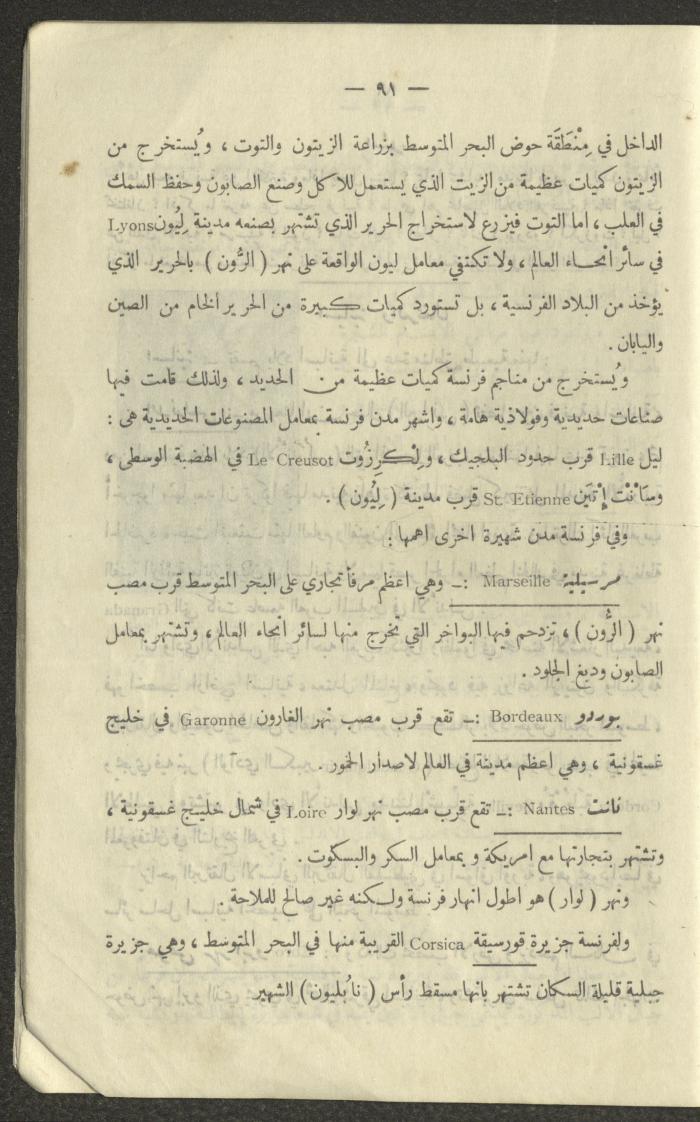 — ٩١ —
الداخل في مِنْطَقَة حوض البحر المتوسط بزراعة الزيتون والتوت ، ويُستخرج من
الزيتون كميات عظيمة من الزيت الذي يستعمل للاكل وصنع الصابون وحفظ السمك
في العلب ، اما التوت فيزرع لاستخراج الحرير الذي تشتهر بصنعه مدينة لِيُون Lyons
في سائر انحـاء العالم ، ولا تكتفي معامل ليون الواقعة على نهر ( الرُّون ) بالحرير الذي
يؤخذ من البلاد الفرنسية ، بل تستورد كميات كـبيرة من الحرير الخام من الصين
واليابان .
ويُستخرج من مناجم فرنسة كميات عظيمة من الحديد ، ولذلك قامت فيها
صناعات حديدية وفولاذية هامة ، واشهر مدن فرنسة بمعامل المصنوعات الحديدية هي :
ليل Lille قرب حدود البلجيك ، ولِكْرِزُوت Le Creusot في الهضبة الوسطى ،
وسَانْتْ إِتْيَن St. Etienne قرب مدينة ( لِيُون ) .
وفي فرنسة مدن شهيرة اخرى اهمها :
مرسيلية Marseille :ــ وهي اعظم مرفأ تجاري على البحر المتوسط قرب مصب
نهر ( الرُّون ) ، تزدحم فيها البواخر التي تخرج منها لسائر انحاء العالم ، وتشتهر بمعامل
الصابون ودبغ الجلود .
بوردو Bordeaux :ــ تقع قرب مصب نهر الغارون Garonne في خليج
غسقونية ، وهي اعظم مدينة في العالم لاصدار الخمور .
نانت Nantes :ــ تقع قرب مصب نهر لوار Loire في شمال خليج غسقونية ،
وتشتهر بتجارتها مع امريكة و بمعامل السكر والبسكوت .
ونهر ( لوار ) هو اطول انهار فرنسة ولـكنه غير صالح للملاحة .
ولفرنسة جزيرة قورسيقة Corsica القريبة منها في البحر المتوسط ، وهي جزيرة
جبلية قليلة السكان تشتهر بانها مسقط رأس ( نابُليون ) الشهير